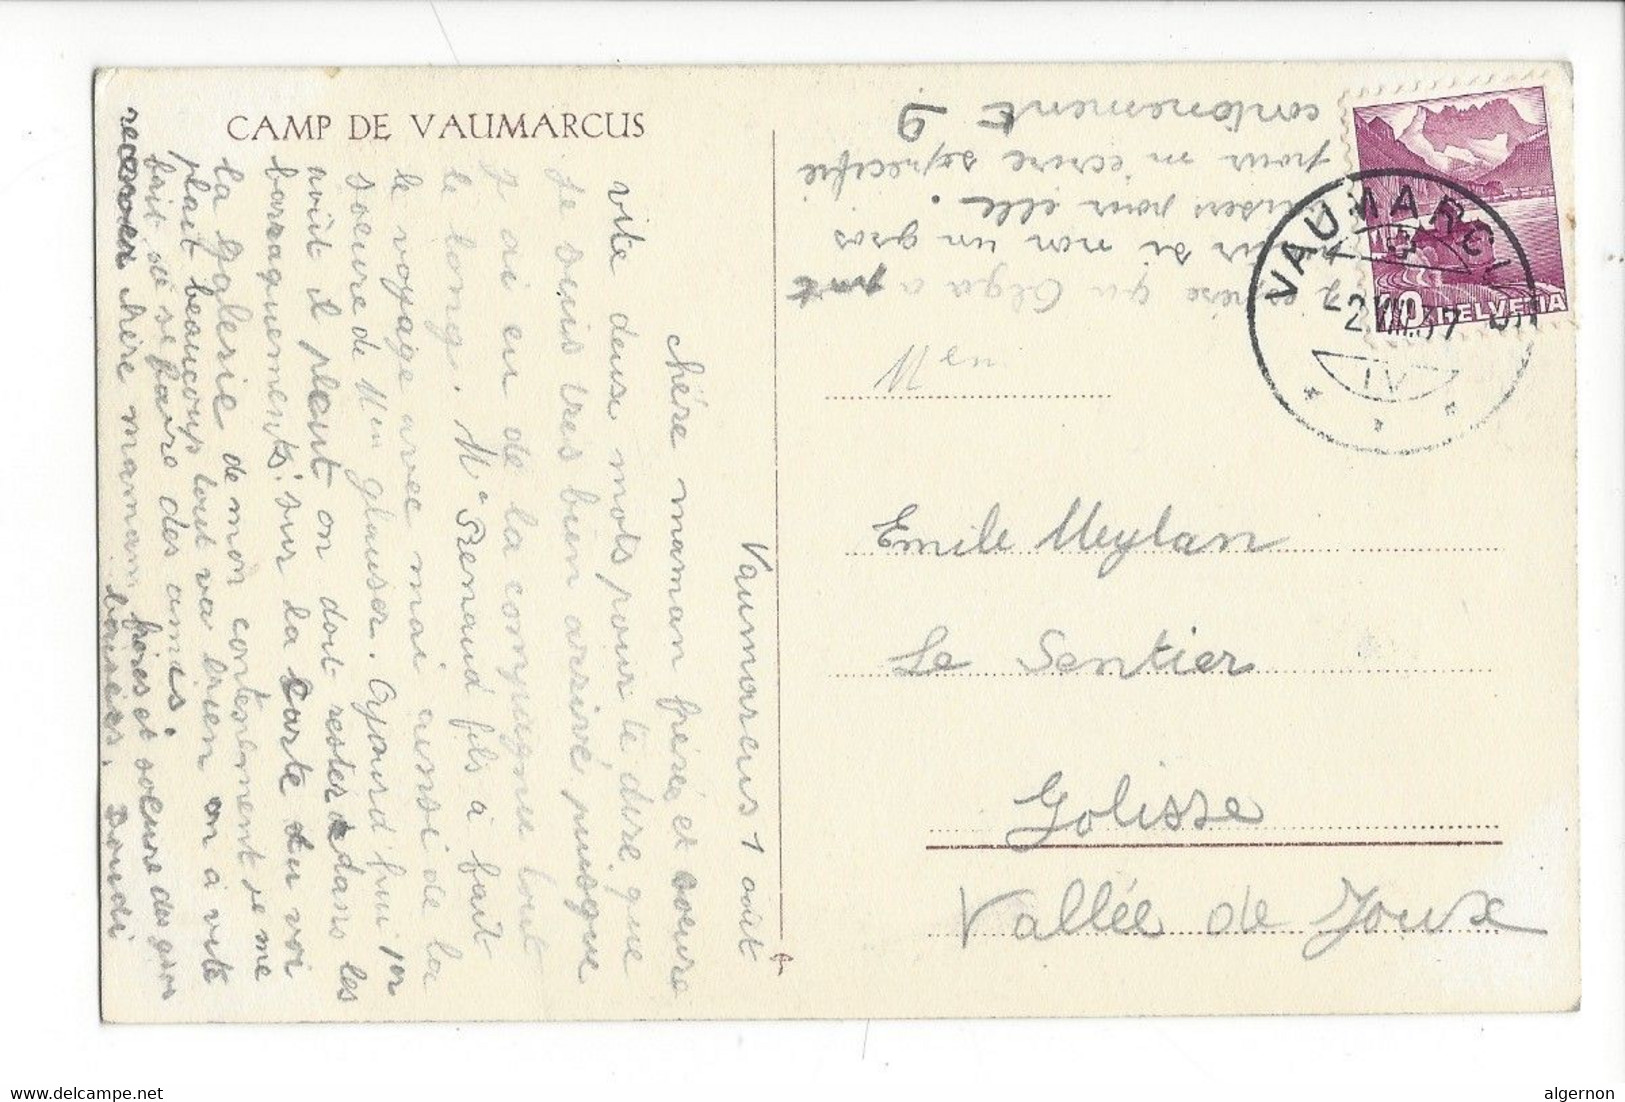 CAMP DE VAUMARCUS
Vaumarcus 1 août
chère maman frères et soeure
vite deux mots pour te dire que
je suis très bien arrivé puisque
j ai eu de la compagnie tout
le long. Mr Renaud fils à fait
le voyage avec moi ainsi de la
soeure de Men glauser. Ajourd'hui 1er
août il pleut on doit rester dans les
barraquements. sur la carte tu voi
la Galerie de mon contonement je me
plait beaucoup tout va bien on à vite
fait de se faire des amis.
recever chère maman frères et soeure des gros
baisers. Doudi
j espère qu Olga a
si non un gros
pour elle.
pour m écrire spécifié
contonement 9
Men
Emile Meylan
Le Sentier
Golisse
Vallée de Joux
VAUMARCUS
2.VIII.37
HELVETIA
10
www.delcampe.net
algernon